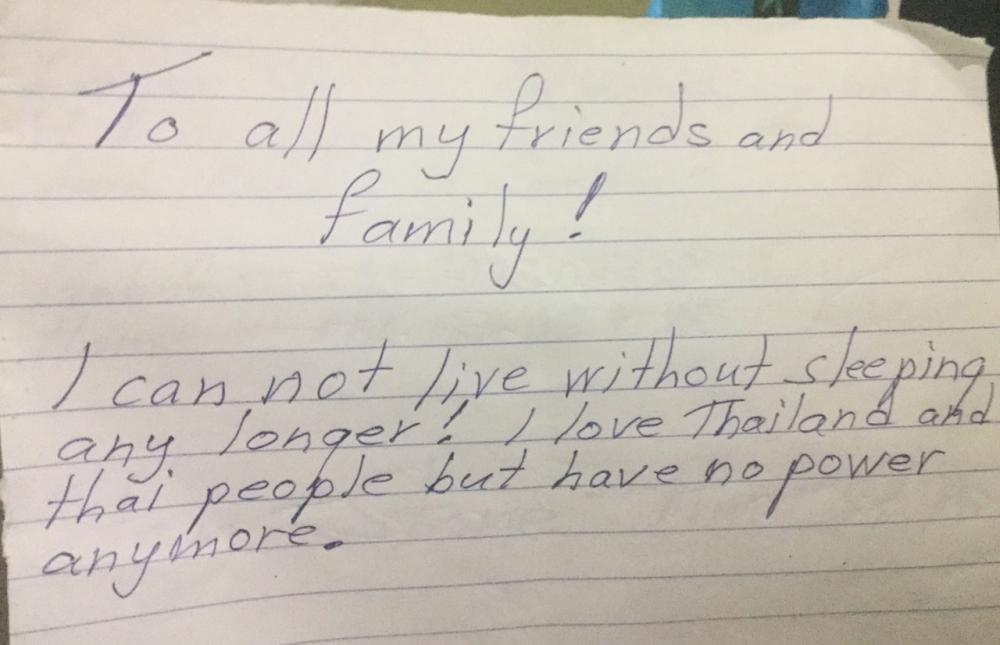 To all my friends and
family!
I can not live without sleeping
any longer! I love Thailand and
thai people but have no power
anymore.